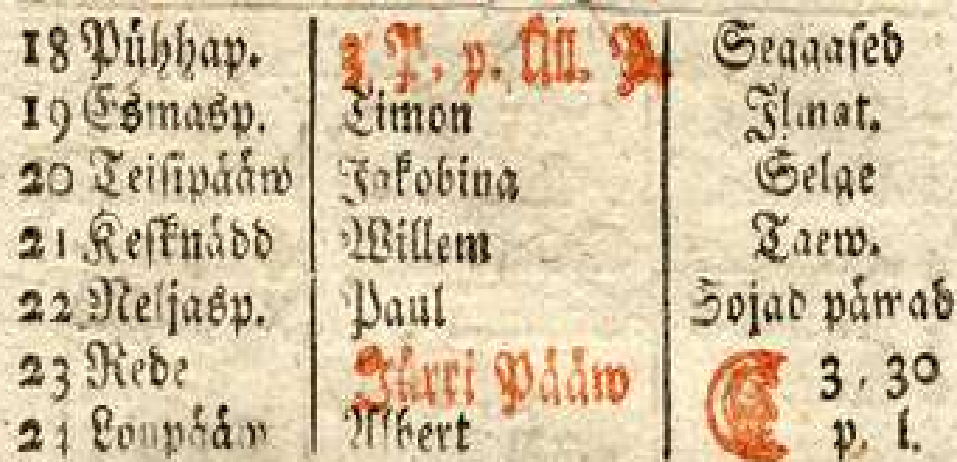 18 Pühhap. 1 P. p. Üll. P. Seggased
19 Esmasp. Timon Ilmat.
20 Teisipääw Jakobina Selge
21 Keſknädd Willem Taew.
22 Neljasp. Paul Sojad päwad
23 Rede Jürri Pääw 3, 30
24 Loupääw Albert p. l.